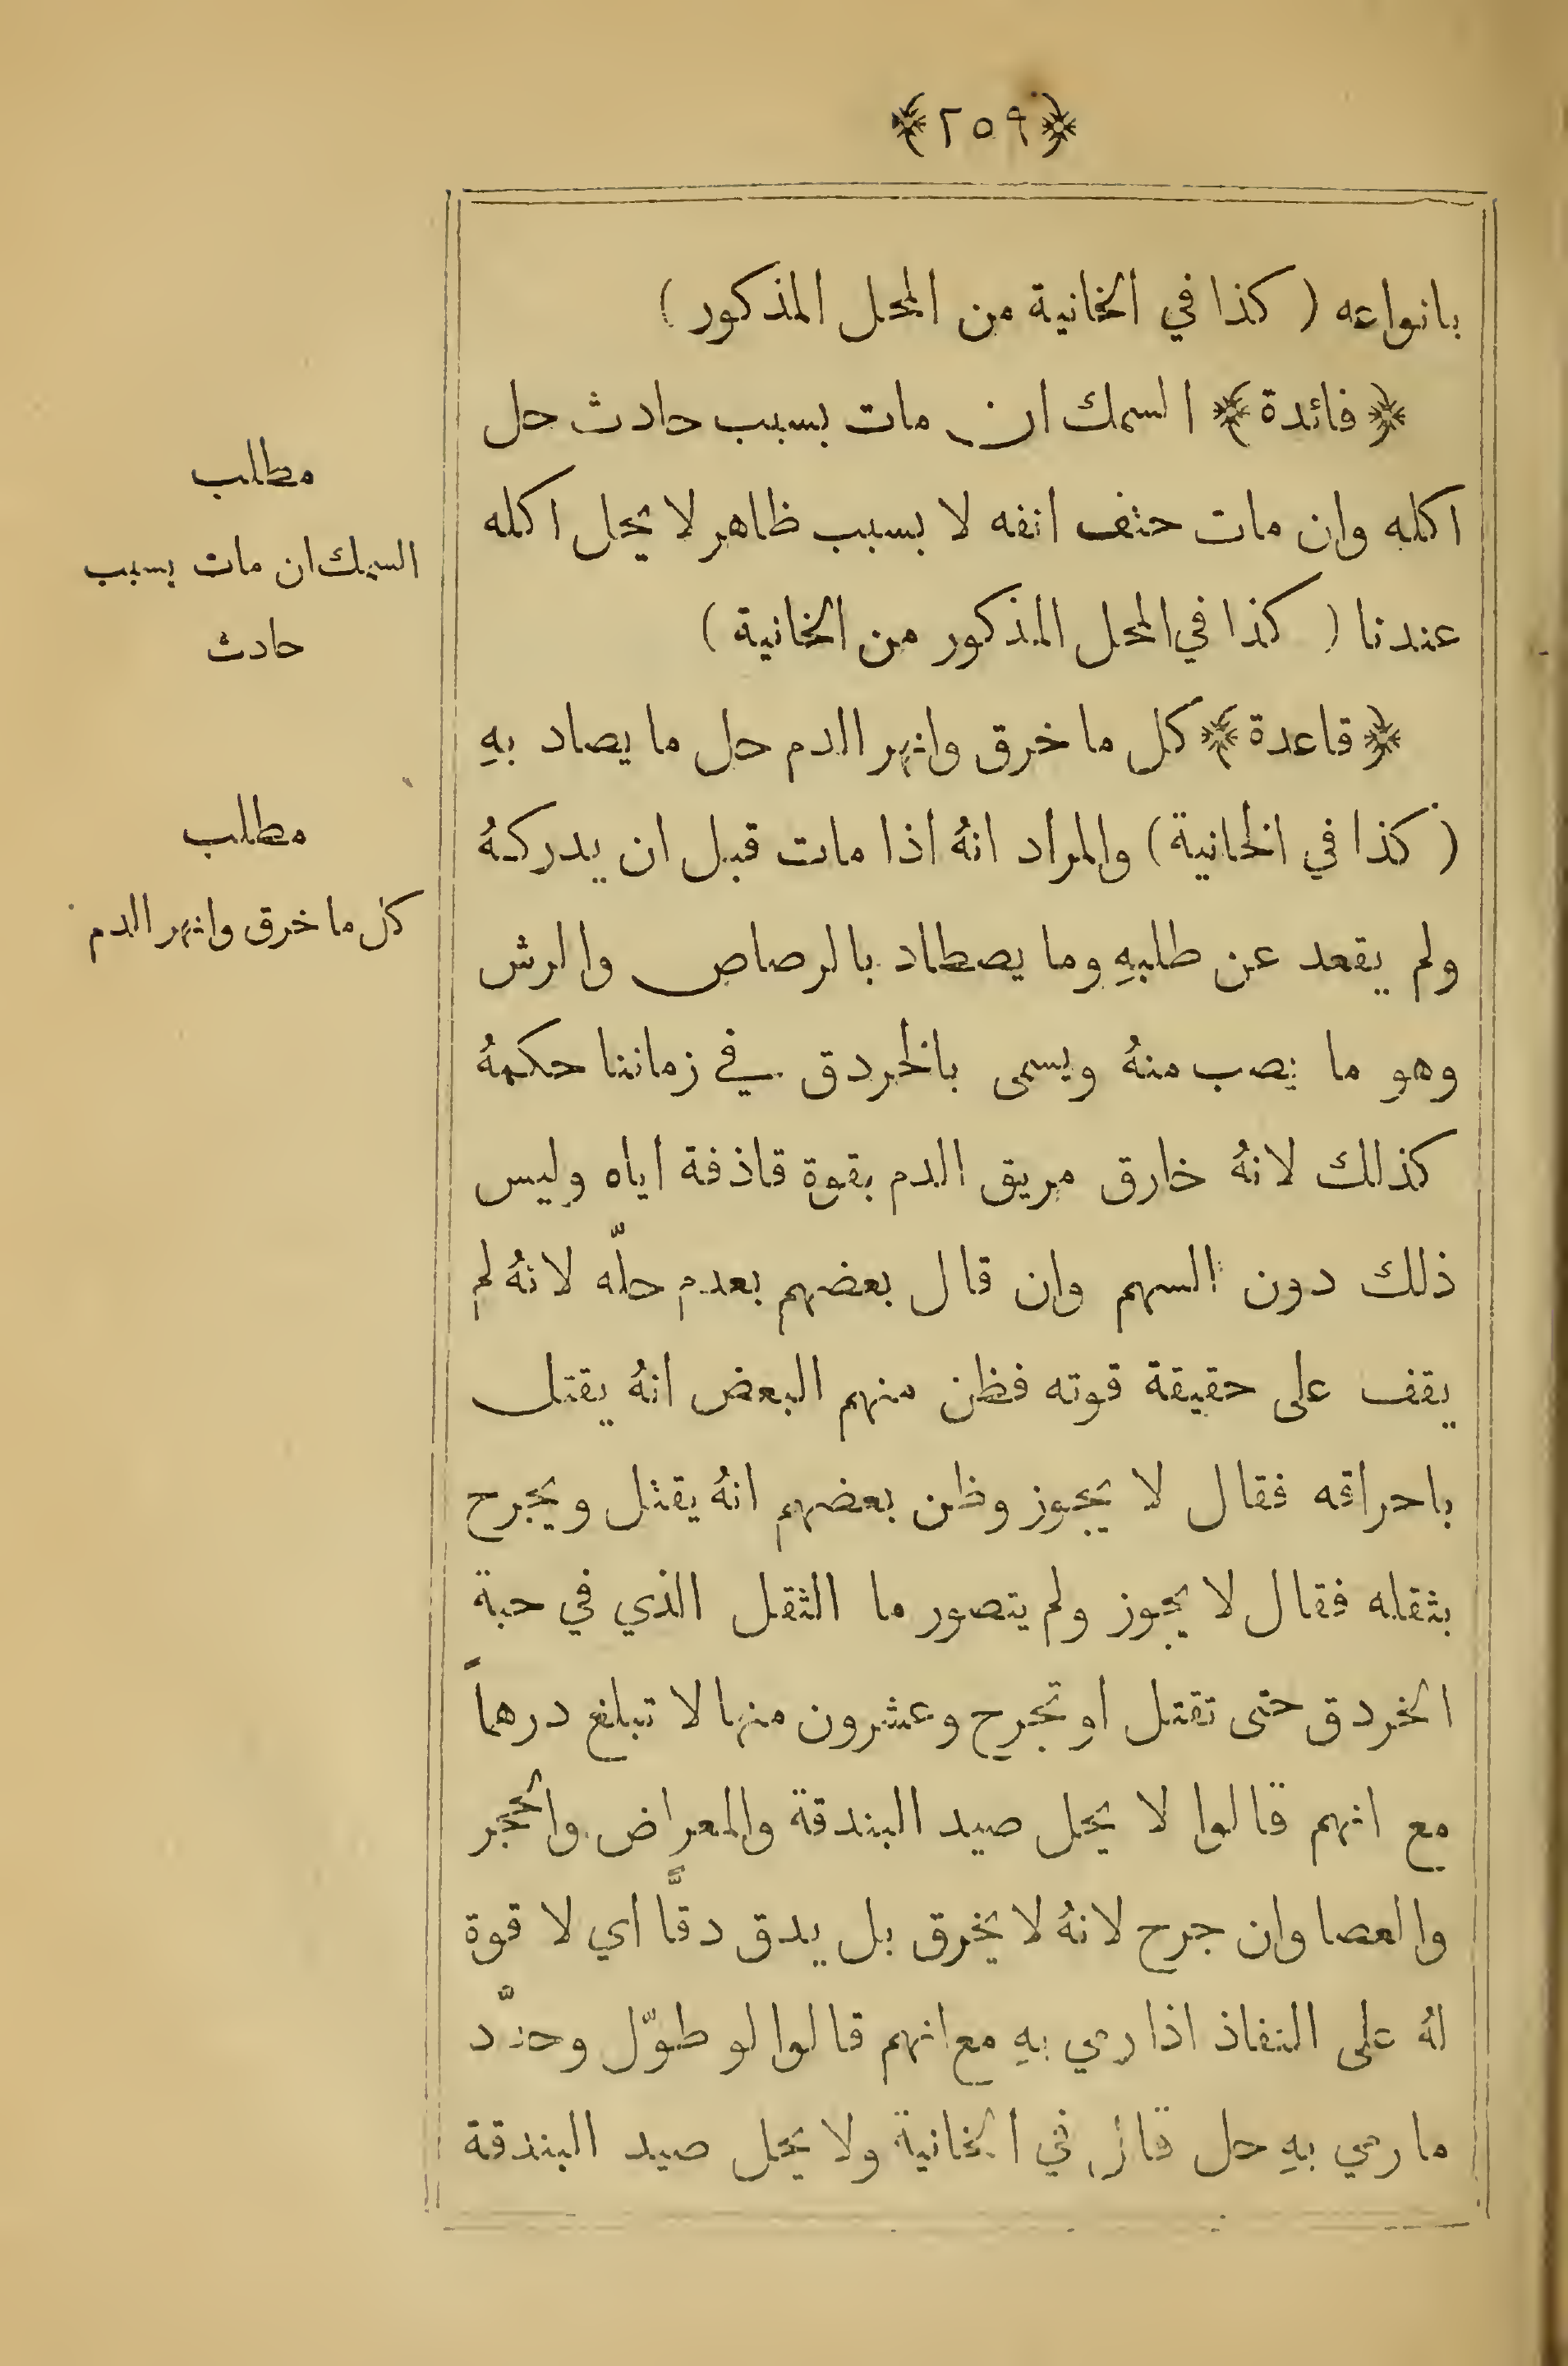 ﴿٢٥٩﴾
بانواعه ( كذا في الخانية من المحل المذكور )
﴿ فائدة ﴾ السمك ان مات بسبب حادث حل
اكله وان مات حتف انفه لا بسبب ظاهر لا يحل اكله
عندنا ( كذا في المحل المذكور من الخانية )
﴿ قاعدة ﴾ كل ما خرق وانهر الدم حل ما يصاد بهِ
( كذا في الخانية ) والمراد انهُ اذا مات قبل ان يدركهُ
ولم يقعد عن طلبهِ وما يصطاد بالرصاص والرش
وهو ما يصب منهُ ويسمى بالخردق في زماننا حكمهُ
كذلك لانهُ خارق مريق الدم بقوة قاذفة اياه وليس
ذلك دون السهم وان قال بعضهم بعدم حلّه لانهُ لم
يقف على حقيقة قوته فظن منهم البعض انهُ يقتل
باحراقه فقال لا يجوز وظن بعضهم انهُ يقتل ويجرح
بثقله فقال لا يجوز ولم يتصور ما الثقل الذي في حبة
الخردق حتى تقتل او تجرح وعشرون منها لا تبلغ درهماً
مع انهم قالوا لا يحل صيد البندقة والمعراض والحجر
والعصا وان جرح لانهُ لا يخرق بل يدق دقًّا اي لا قوة
لهُ على النفاذ اذا رمي بهِ مع انهم قالوا لو طوّل وحدّد
ما رمي بهِ حل قال في الخانية ولا يحل صيد البندقة
مطلب
السمك ان مات بسبب
حادث
مطلب
كل ما خرق وانهر الدم